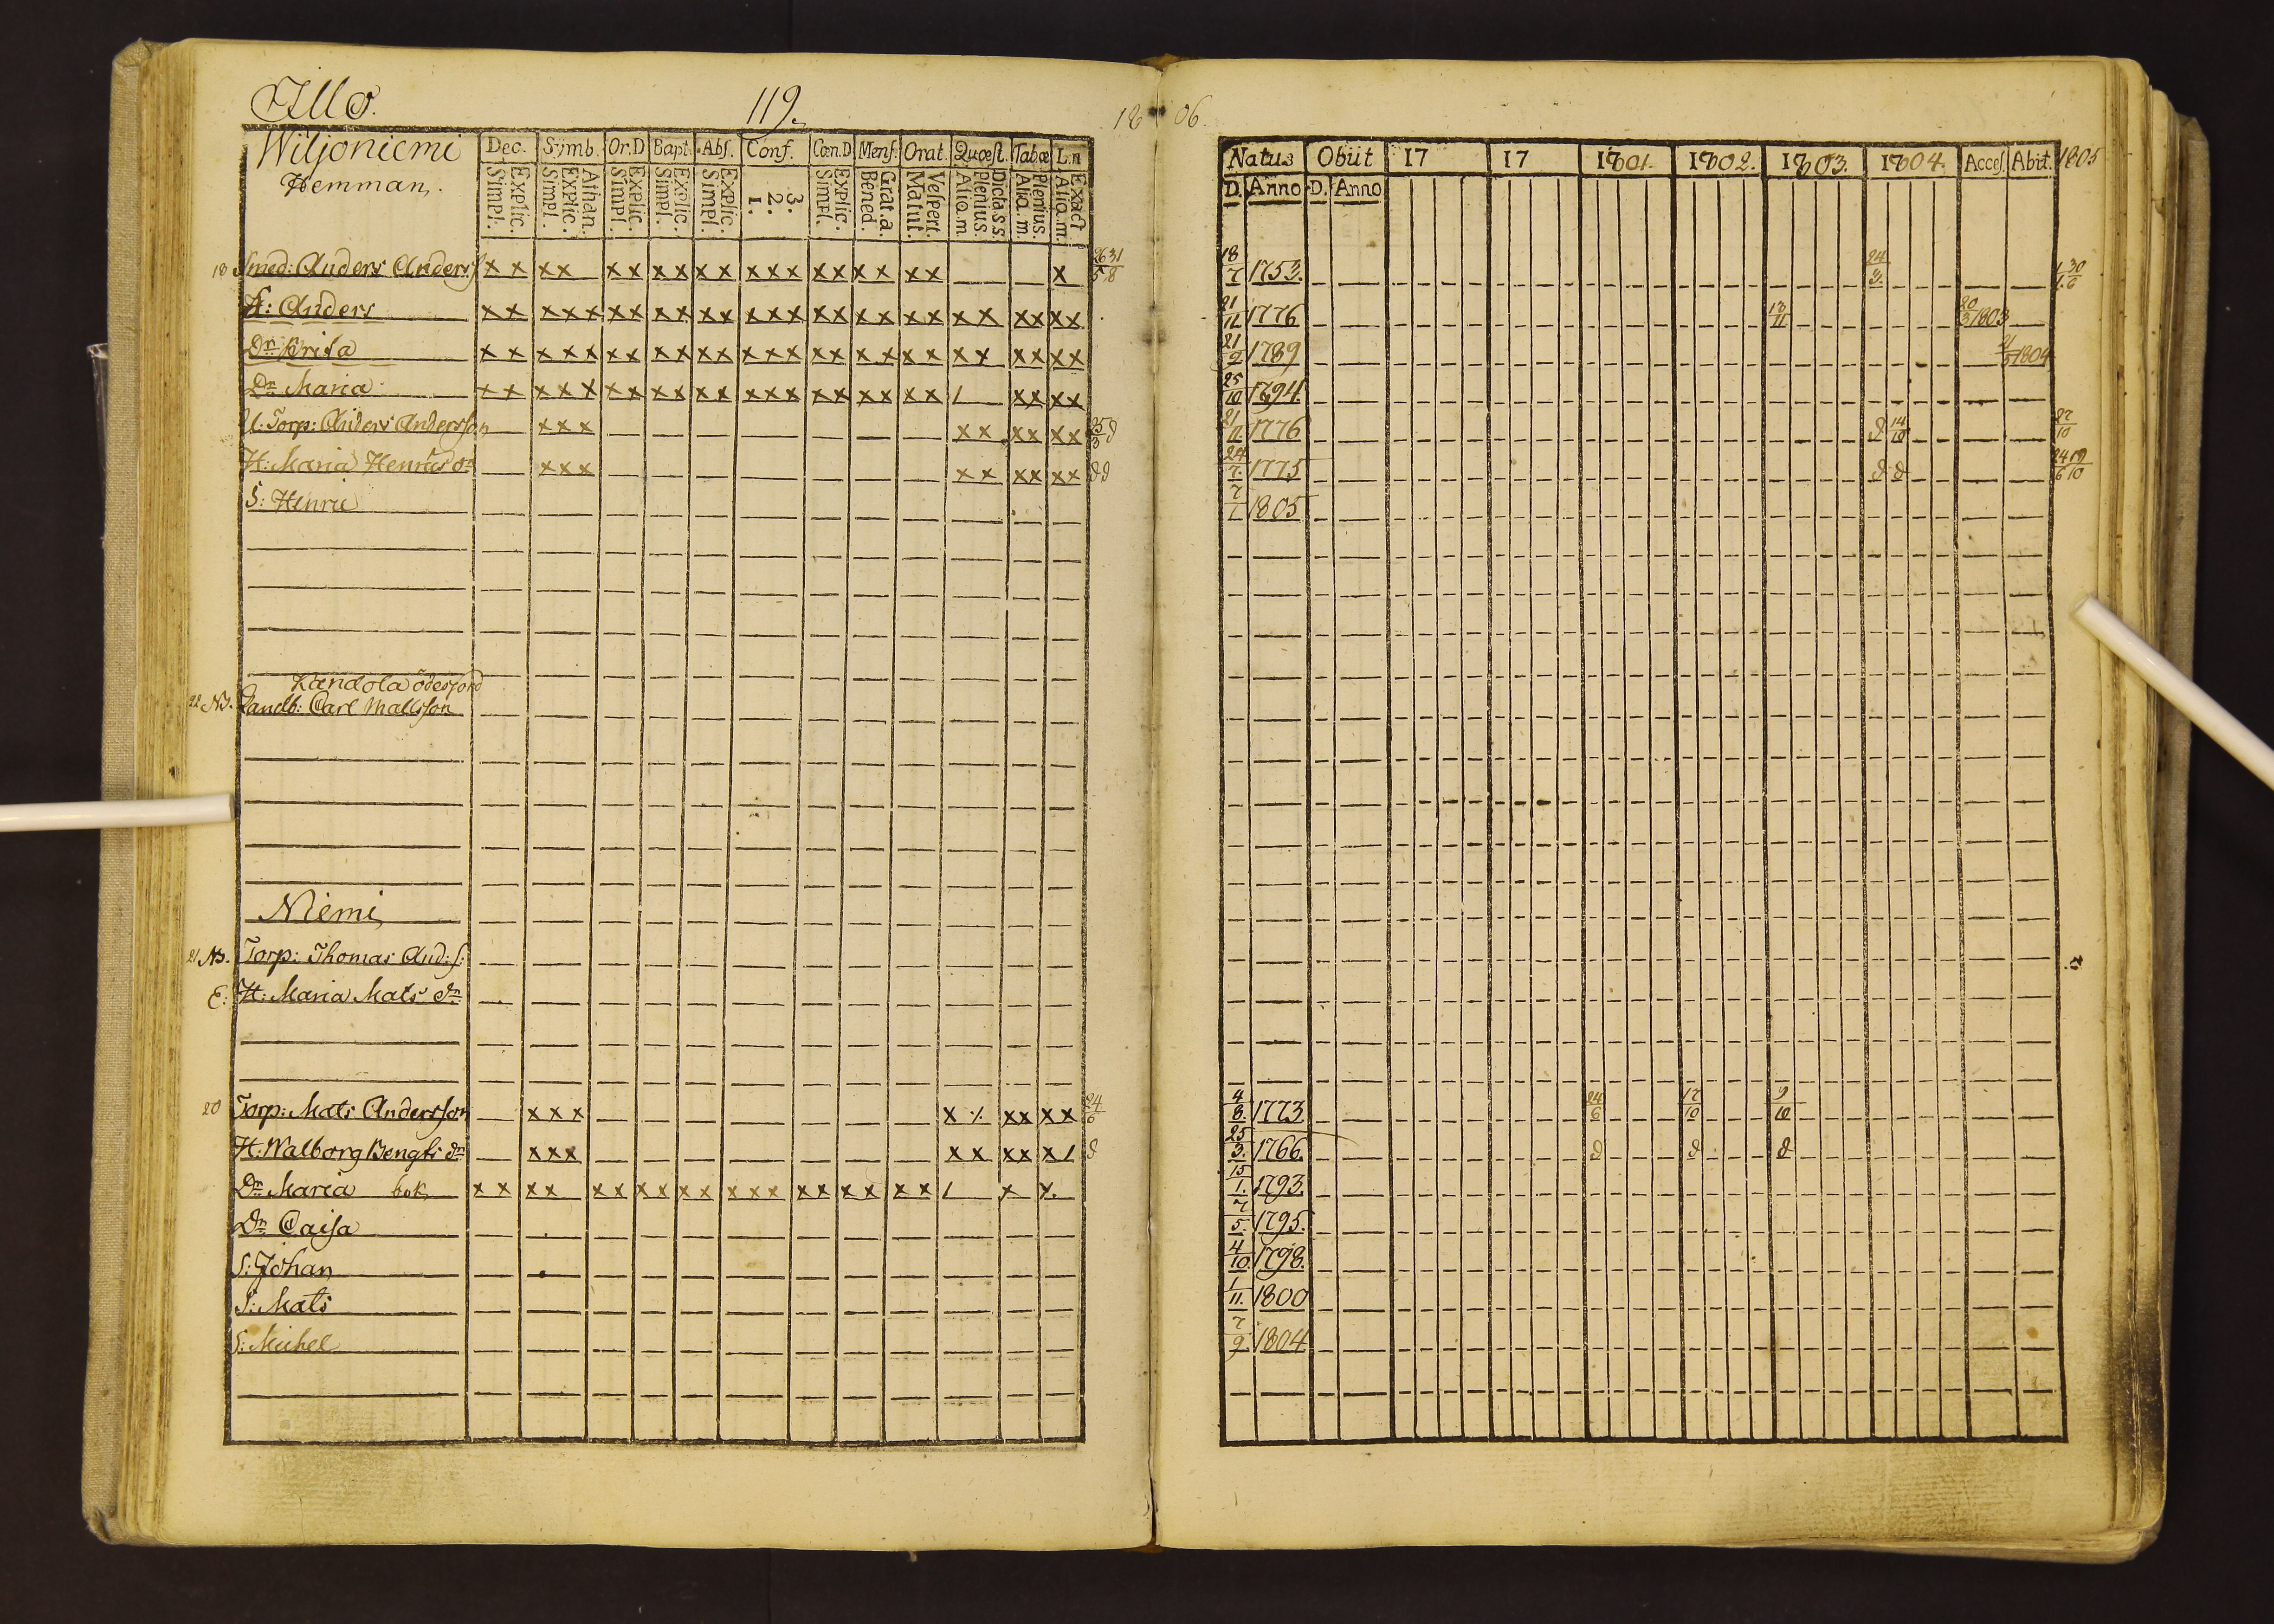 Illo. 119.
18 06.
Wiljoniemi Dec. Simb. Or.D Bapt. Abs. Conf. Cœn.D Mens. Orat. Quæst. Tabæ L.n
Hemman. Simpl. Explic. Simpl. Explic. Athan. Simpl. Explic. Simpl. Explic. Simpl. Explic. 1. 2. 3. Simpl. Explic. Bened. Grat.a. Matut. Vespert. Aliq.m Plenius. Dicta s.s. Aliq.m. Plenius. Aliq.m. Exact
Natus Obiit 17 17 1801. 1802. 1803. 1804. Acces. Abit. 1805
D. Anno D. Anno
18 Smed: Anders Anders x x x x x x x x x x x x x x x x x x x x 26/5 31/8 18/7 1753. 24/3. 30
H: Anders x x x x x x x x x x x x x x x x x x x x x x x x x x 21/11 1776 13/11 20/3 1803
Dr Brita x x x x x x x x x x x x x x x x x x x x x x x x x x 21/2 1789 1804
Dr Maria x x x x x x x x x x x x x x x x x x x x / x x x x 25/10 1794.
U. Torp: Anders Andersson x x x x x x x x x 25/3 d 21/11 1776 d 14/10 27/10
H: Maria Henrics dr x x x x x x x x x d d 24/7. 1775 d d 24/6 19/10
S: Henric 7/7 1805
Kandola ödesjord
22 NB. Landb: Carl Mattsson
Niemi
21 NB. Torp: Thomas And: s:
E: H: Maria Mats dr
20 Torp: Mats Andersson x x x x ·/. x x x x 24/6 4/8. 1773 24/6 17/10 9/10
H: Walborg Bengts dr x x x x x x x x / d 25/3. 1766. d d d
Dr Maria bok x x x x x x x x x x x x x x x x x x x / x x. 15/1. 1793.
Dr Caisa 7/5. 1795.
S: Johan 4/10 1798.
S: Mats 1/11. 1800
S: Michel 7/9 1804